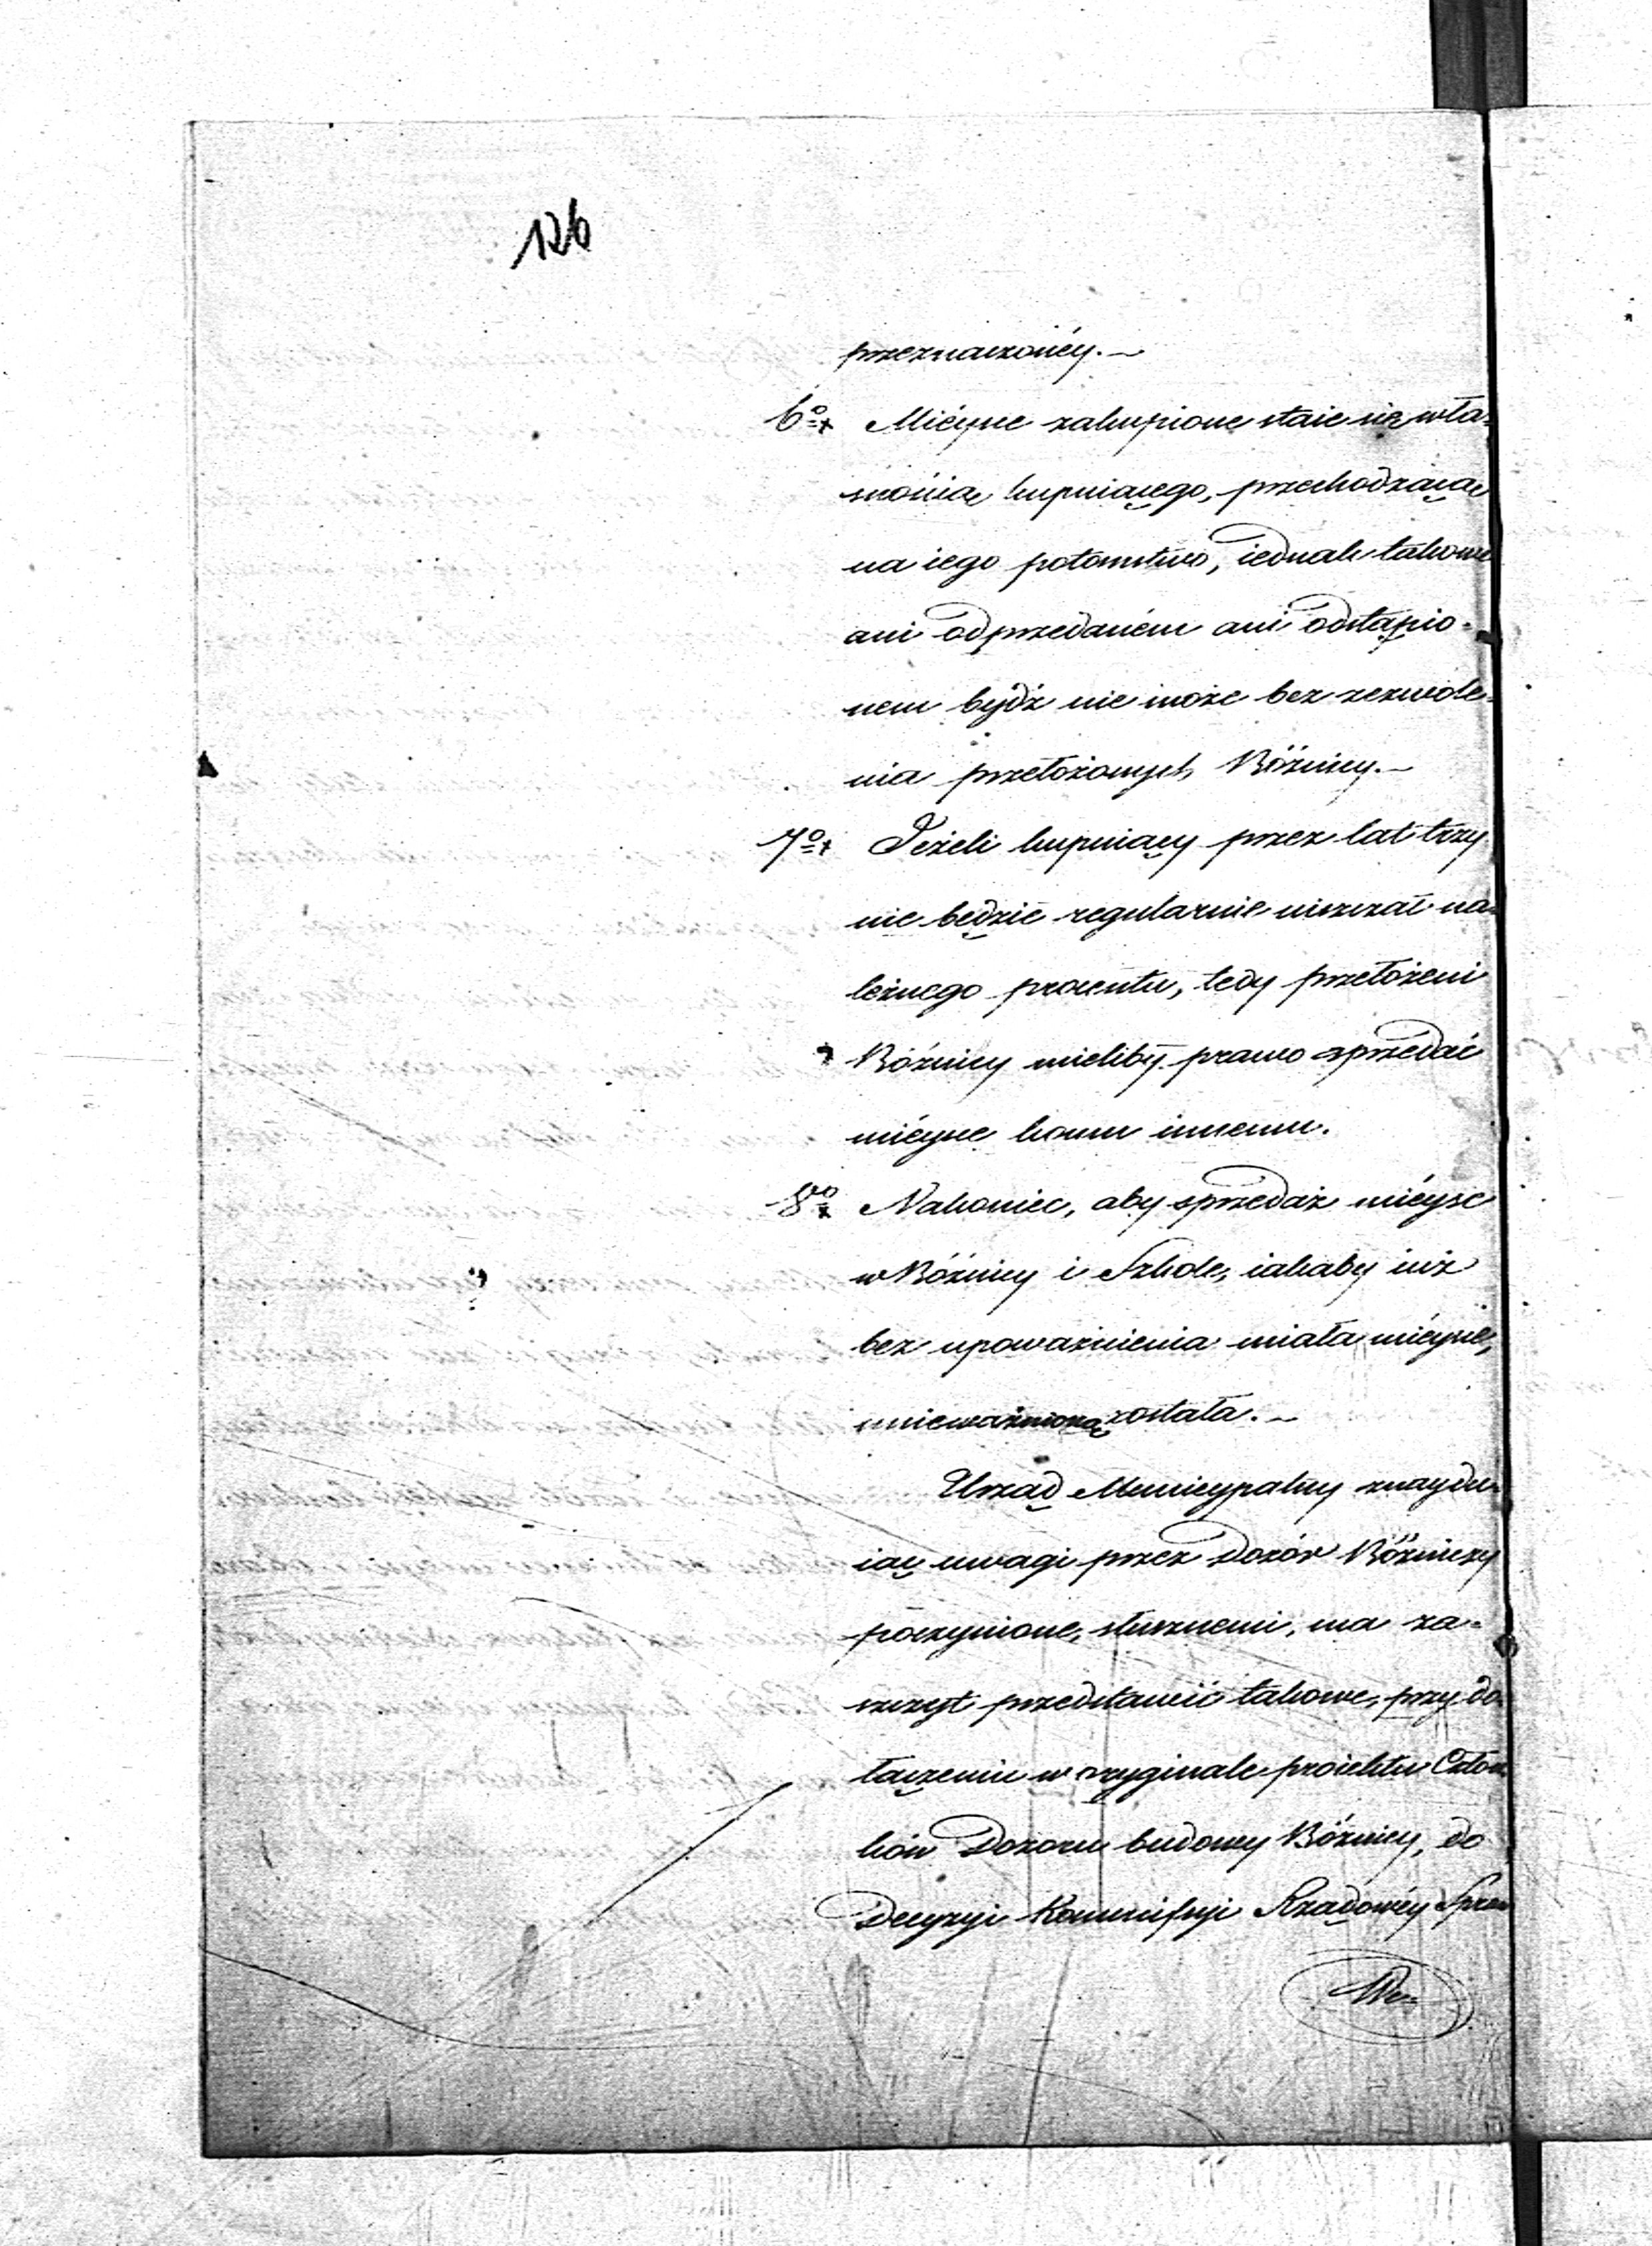 126
przeznaczonéy.–
6º Mieysce zakupione staie się wła-
snością kupuiącego, przechodzącą
na iego potomstwo, iednak takowe
ani odprzedaném ani odstąpio-
nem bydź nie może bez zezwole-
nia przełożonych Bóżnicy.–
7º Jeżeli kupuiący przez lat trzy
nie będzie regularnie uiszczał na-
leżnego procentu, tedy przełożeni
Bóżnicy mieliby prawo sprzedać
mieysce komu innemu.
8º Nakoniec, aby sprzedaż mieysc
w Bóżnicy i Szkole, iakaby iuż
bez upoważnienia miała mieysce,
unieważnioną została.–
Urząd Municypalny znaydu-
iąc uwagi przez Dozór Bóżniczy
poczynione, słusznemi, ma za-
szczyt przedstawić takowe, przy do-
łączeniu w oryginale proiektu Człon
ków Dozoru budowy Bóżnicy, do
Decyzyi Kommissyi Rządowéy Spraw
We-